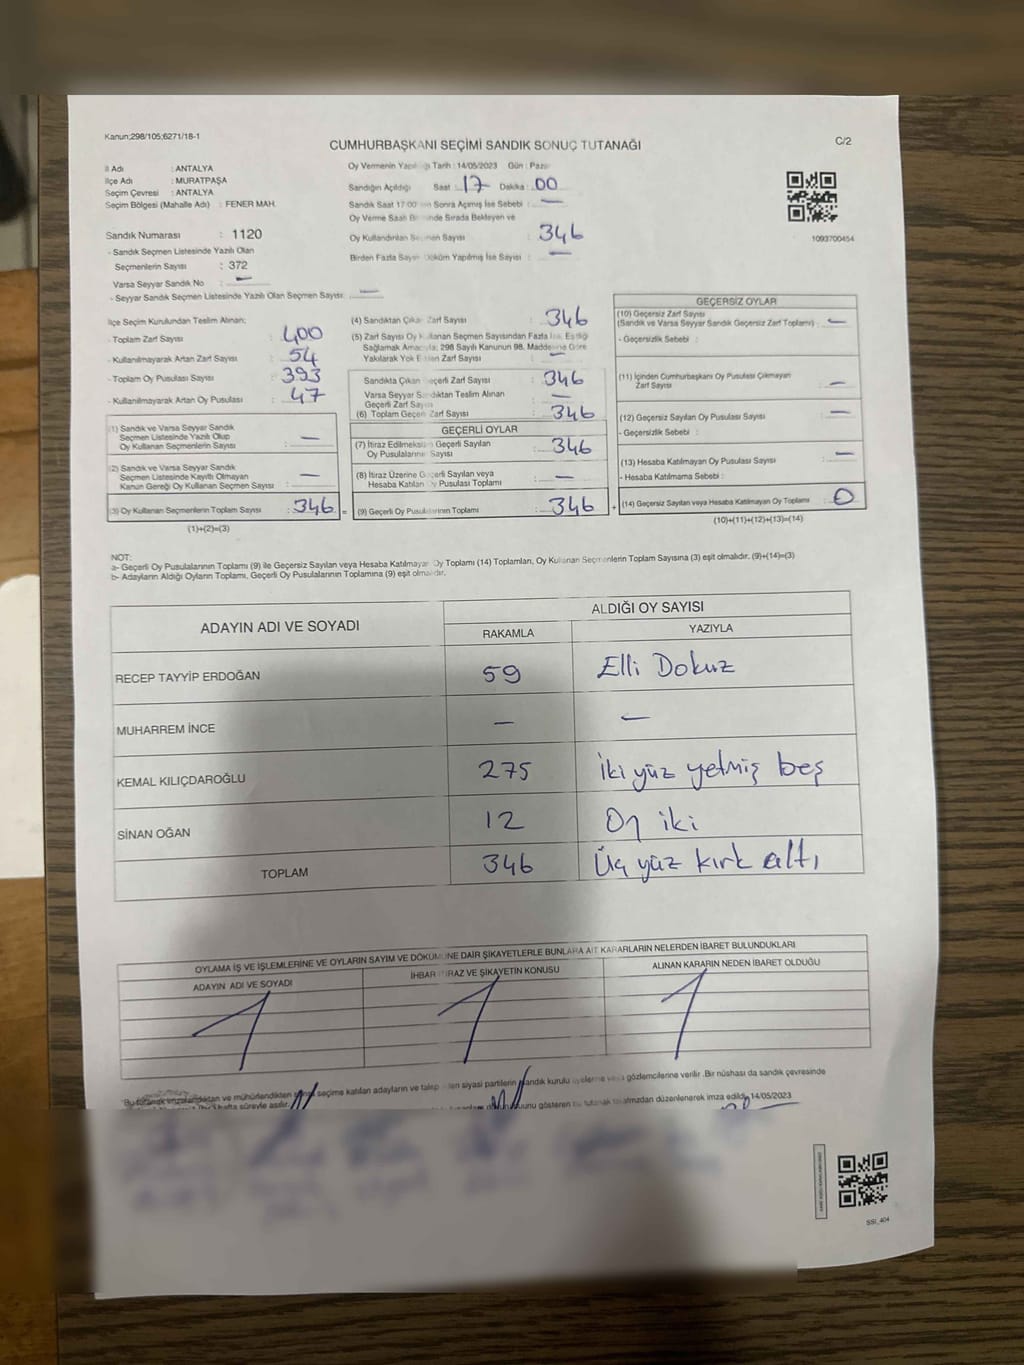 Kanun;298/105;6271/18-1
CUMHURBAŞKANI SEÇİMİ SANDIK SONUÇ TUTANAĞI
C/2
İl Adı : ANTALYA
İlçe Adı : MURATPAŞA
Seçim Çevresi : ANTALYA
Seçim Bölgesi (Mahalle Adı) : FENER MAH.
Sandık Numarası : 1120
- Sandık Seçmen Listesinde Yazılı Olan
Seçmenlerin Sayısı : 372
Varsa Seyyar Sandık No : —
- Seyyar Sandık Seçmen Listesinde Yazılı Olan Seçmen Sayısı: —
Oy Vermenin Tarih : 14/05/2023 Gün :
Sandığın Açıldığı Saat : 17 Dakika : 00
Sandık Saat 17:00 Sonra Açımış İse Sebebi : —
Oy Verme Saati Sırada Bekleyen ve
Oy Kullandırılan Sayısı : 346
Birden Fazla Sayım Döküm Yapılmış İse Sayısı : —
1093700454
İlçe Seçim Kurulundan Teslim Alınan;
- Toplam Zarf Sayısı : 400
- Kullanılmayarak Artan Zarf Sayısı : 54
- Toplam Oy Pusulası Sayısı : 393
- Kullanılmayarak Artan Oy Pusulası : 47
(1) Sandık ve Varsa Seyyar Sandık
Seçmen Listesinde Yazılı Olup
Oy Kullanan Seçmenlerin Sayısı : —
(2) Sandık ve Varsa Seyyar Sandık
Seçmen Listesinde Kayıtlı Olmayan
Kanun Gereği Oy Kullanan Seçmen Sayısı : —
(3) Oy Kullanan Seçmenlerin Toplam Sayısı : 346 =
(1)+(2)=(3)
(4) Sandıktan Çıkan Zarf Sayısı : 346
(5) Zarf Sayısı Oy Kullanan Seçmen Sayısından Fazla İse, Eşitliği
Sağlamak Amacıyla; 298 Sayılı Kanunun 98. Maddesine Göre
Yakılarak Yok Edilen Zarf Sayısı : —
Sandıkta Çıkan Geçerli Zarf Sayısı : 346
Varsa Seyyar Sandıktan Teslim Alınan
Geçerli Zarf Sayısı : —
(6) Toplam Geçerli Zarf Sayısı : 346
GEÇERLİ OYLAR
(7) İtiraz Edilmeksizin Geçerli Sayılan
Oy Pusulalarının Sayısı : 346
(8) İtiraz Üzerine Geçerli Sayılan veya
Hesaba Katılan Oy Pusulası Toplamı : —
(9) Geçerli Oy Pusulalarının Toplamı : 346 +
GEÇERSİZ OYLAR
(10) Geçersiz Zarf Sayısı
(Sandık ve Varsa Seyyar Sandık Geçersiz Zarf Toplamı) : —
- Geçersizlik Sebebi :
(11) İçinden Cumhurbaşkanı Oy Pusulası Çıkmayan
Zarf Sayısı : —
(12) Geçersiz Sayılan Oy Pusulası Sayısı : —
- Geçersizlik Sebebi :
(13) Hesaba Katılmayan Oy Pusulası Sayısı : —
- Hesaba Katılmama Sebebi :
(14) Geçersiz Sayılan veya Hesaba Katılmayan Oy Toplamı : 0
(10)+(11)+(12)+(13)=(14)
NOT:
a- Geçerli Oy Pusulalarının Toplamı (9) ile Geçersiz Sayılan veya Hesaba Katılmayan Oy Toplamı (14) Toplamları, Oy Kullanan Seçmenlerin Toplam Sayısına (3) eşit olmalıdır. (9)+(14)=(3)
b- Adayların Aldığı Oyların Toplamı, Geçerli Oy Pusulalarının Toplamına (9) eşit olmalıdır.
ADAYIN ADI VE SOYADI
ALDIĞI OY SAYISI
RAKAMLA YAZIYLA
RECEP TAYYİP ERDOĞAN 59 Elli Dokuz
MUHARREM İNCE — —
KEMAL KILIÇDAROĞLU 275 İki yüz yetmiş beş
SİNAN OĞAN 12 On iki
TOPLAM 346 Üç yüz kırk altı
OYLAMA İŞ VE İŞLEMLERİNE VE OYLARIN SAYIM VE DÖKÜMÜNE DAİR ŞİKAYETLERLE BUNLARA AİT KARARLARIN NELERDEN İBARET BULUNDUKLARI
ADAYIN ADI VE SOYADI İHBAR İTİRAZ VE ŞİKAYETİN KONUSU ALINAN KARARIN NEDEN İBARET OLDUĞU
"Bu tutanak imzalandıktan ve mühürlendikten seçime katılan adayların ve talep eden siyasi partilerin sandık kurulu üyelerine veya gözlemcilerine verilir .Bir nüshası da sandık çevresinde
hafta süreyle asılır. gösteren tutanak tarafımızdan düzenlenerek imza edildi. 14/05/2023
SSI_404